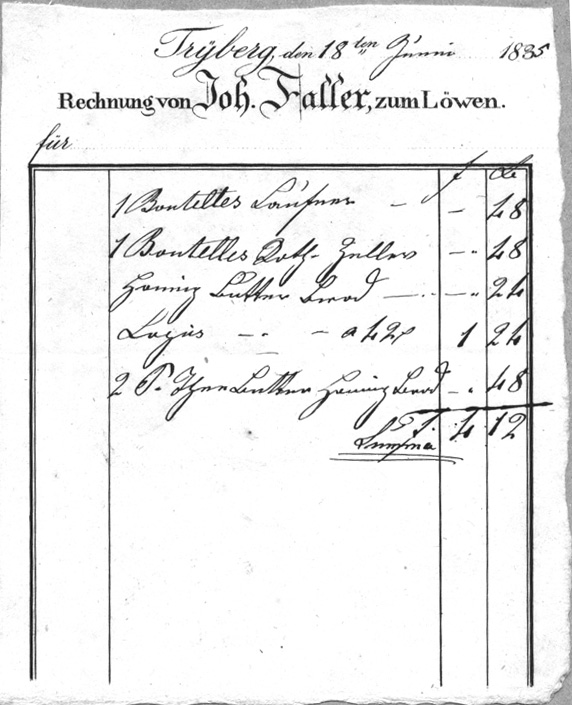 Trÿberg, den 18ten Junni 1835
Rechnung von Joh. Faller, zum Löwen.
für
f x
1 Bouteltes Laufner — — 48
1 Boutelles Roth Zeller — 48
Honing Butter Brod — — 24
Logis — — a 42 x 1 24
2 P. Thee Butter Honing Brod — 48
Summa f. 4 12